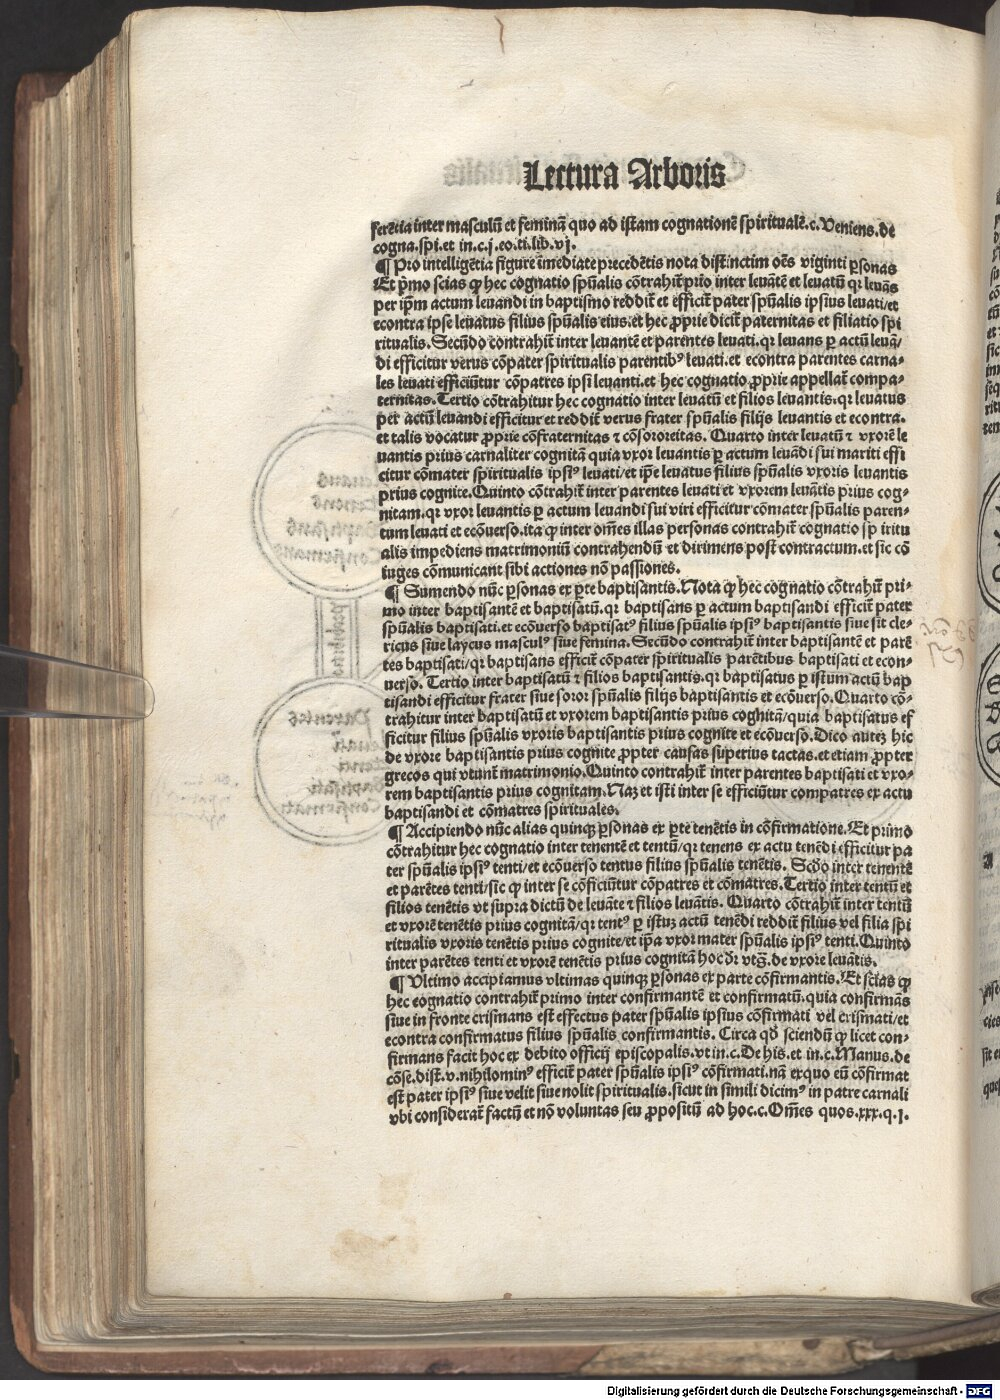 Lectura Arboris
ferētia inter masculū et feminā quo ad istam cognationē spiritualē.c.Veniens.de
cogna.spi.et in.c.j.eo.ti.lib.vj.
¶ Pro intelligētia figure īmediate precedētis nota distinctim oēs viginti ꝑsonas
Et pͥmo scias ꝙ hec cognatio spūalis cōtrahit̄ prīo inter levātē et levatū qꝛ levās
per ipm̄ actum levandi in baptismo reddit̄ et efficit̄ pater spūalis ipsius levati/et
econtra ipse levatus filius spūalis eius.et hec ꝓprie dicit̄ paternitas et filiatio spi
ritualis.Secūdo contrahit̄ inter levantē et parentes levati.qꝛ levans ꝑ actū levā/
di efficitur verus cōpater spiritualis parentibꝰ levati.et econtra parentes carna-
les levati efficiūtur cōpatres ipsi levanti.et hec cognatio ꝓprie appellat̄ compa-
ternitas.Tertio cōtrahitur hec cognatio inter levatū et filios levantis.qꝛ levatus
per actū levandi efficitur et reddit̄ verus frater spūalis filijs levantis et econtra.
et talis vocatur ꝓprie cōfraternitas ⁊ cōsororeitas. Quarto inter levatū ⁊ vxorē le
vantis prius carnaliter cognitā quia vxor levantis ꝑ actum levādi sui mariti effi
citur cōmater spiritualis ipsiꝰ levati/et ip̄e levatus filius spūalis vxoris levantis
prius cognite.Quinto cōtrahit̄ inter parentes levati et vxorem levātis prius cog-
nitam.qꝛ vxor levantis ꝑ actum levandi sui viri efficitur cōmater spūalis paren-
tum levati et ecōuerso.ita ꝙ inter om̄es illas personas contrahit̄ cognatio sp iritu
alis impediens matrimoniū contrahendū et dirimens post contractum.et sic cō
iuges cōmunicant sibi actiones nō passiones.
¶ Sumendo nūc ꝑsonas ex ꝑte baptisantis.Nota ꝙ hec cognatio cōtrahit̄ pri-
mo inter baptisantē et baptisatū.qꝛ baptisans ꝑ actum baptisandi efficit̄ pater
spūalis baptisati.et ecōuerso baptisatꝰ filius spūalis ipsiꝰ baptisantis siue sit cle-
ricus siue laycus masculꝰ siue femina. Secūdo contrahit̄ inter baptisantē et parē
tes baptisati/qꝛ baptisans efficit̄ cōpater spiritualis parētibus baptisati et econ-
uerso. Tertio inter baptisatū ⁊ filios baptisantis.qꝛ baptisatus ꝑ istum actū bap
tisandi efficitur frater siue soror spūalis filijs baptisantis et ecōuerso.Quarto cō-
trahitur inter baptisatū et vxorem baptisantis prius cognitā/quia baptisatus ef
ficitur filius spūalis vxoris baptisantis prius cognite et ecōuerso.Dico auteꝫ hic
de vxore baptisantis prius cognite ꝓpter causas superius tactas.et etiam ꝓpter
grecos qui vtunt̄ matrimonio.Quinto contrahit̄ inter parentes baptisati et vxo-
rem baptisantis prius cognitam.Naꝫ et isti inter se efficiūtur compatres ex actu
baptisandi et cōmatres spirituales.
¶ Accipiendo nūc alias quinqꝫ ꝑsonas ex ꝑte tenētis in cōfirmatione.Et primo
cōtrahitur hec cognatio inter tenentē et tentū/qꝛ tenens ex actu tenēdi efficitur pa
ter spūalis ipsiꝰ tenti/et ecōuerso tentus filius spūalis tenētis. Scd̄o inter tenentē
et parētes tenti/sic ꝙ inter se cōficiūtur cōpatres et cōmatres.Tertio inter tentū et
filios tenētis vt supra dictū de levāte ⁊ filios levātis. Quarto cōtrahit̄ inter tentū
et vxorē tenētis prius cognitā/qꝛ tentꝰ ꝑ istuꝫ actū tenēdi reddit̄ filius vel filia spi
ritualis vxoris tenētis prius cognite/et ip̄a vxor mater spūalis ipsiꝰ tenti.Quinto
inter parētes tenti et vxorē tenētis prius cognitā hoc dr̄ vtꝫ.de vxore levātis.
¶ Vltimo accipiamus vltimas quinqꝫ ꝑsonas ex parte cōfirmantis.Et scias ꝙ
hec eognatio contrahit̄ primo inter confirmantē et confirmatū.quia confirmās
siue in fronte crismans est effectus pater spūalis ipsius cōfirmati vel crismati/et
econtra confirmatus filius spūalis confirmantis. Circa qd̄ sciendū ꝙ licet con-
firmans facit hoc ex debito officij episcopalis.vt in.c.De his.et in.c.Manus.de
cōse.dist̄.v.nihilominꝰ efficit̄ pater spūalis ipsiꝰ cōfirmati.nā exquo eū cōfirmat
est pater ipsiꝰ siue velit siue nolit spiritualis.sicut in simili dicimꝰ in patre carnali
vbi considerat̄ factū et nō voluntas seu ꝓpositū ad hoc.c.Om̄es quos.xxx.q.j.
Digitalisierung gefördert durch die Deutsche Forschungsgemeinschaft - DFG